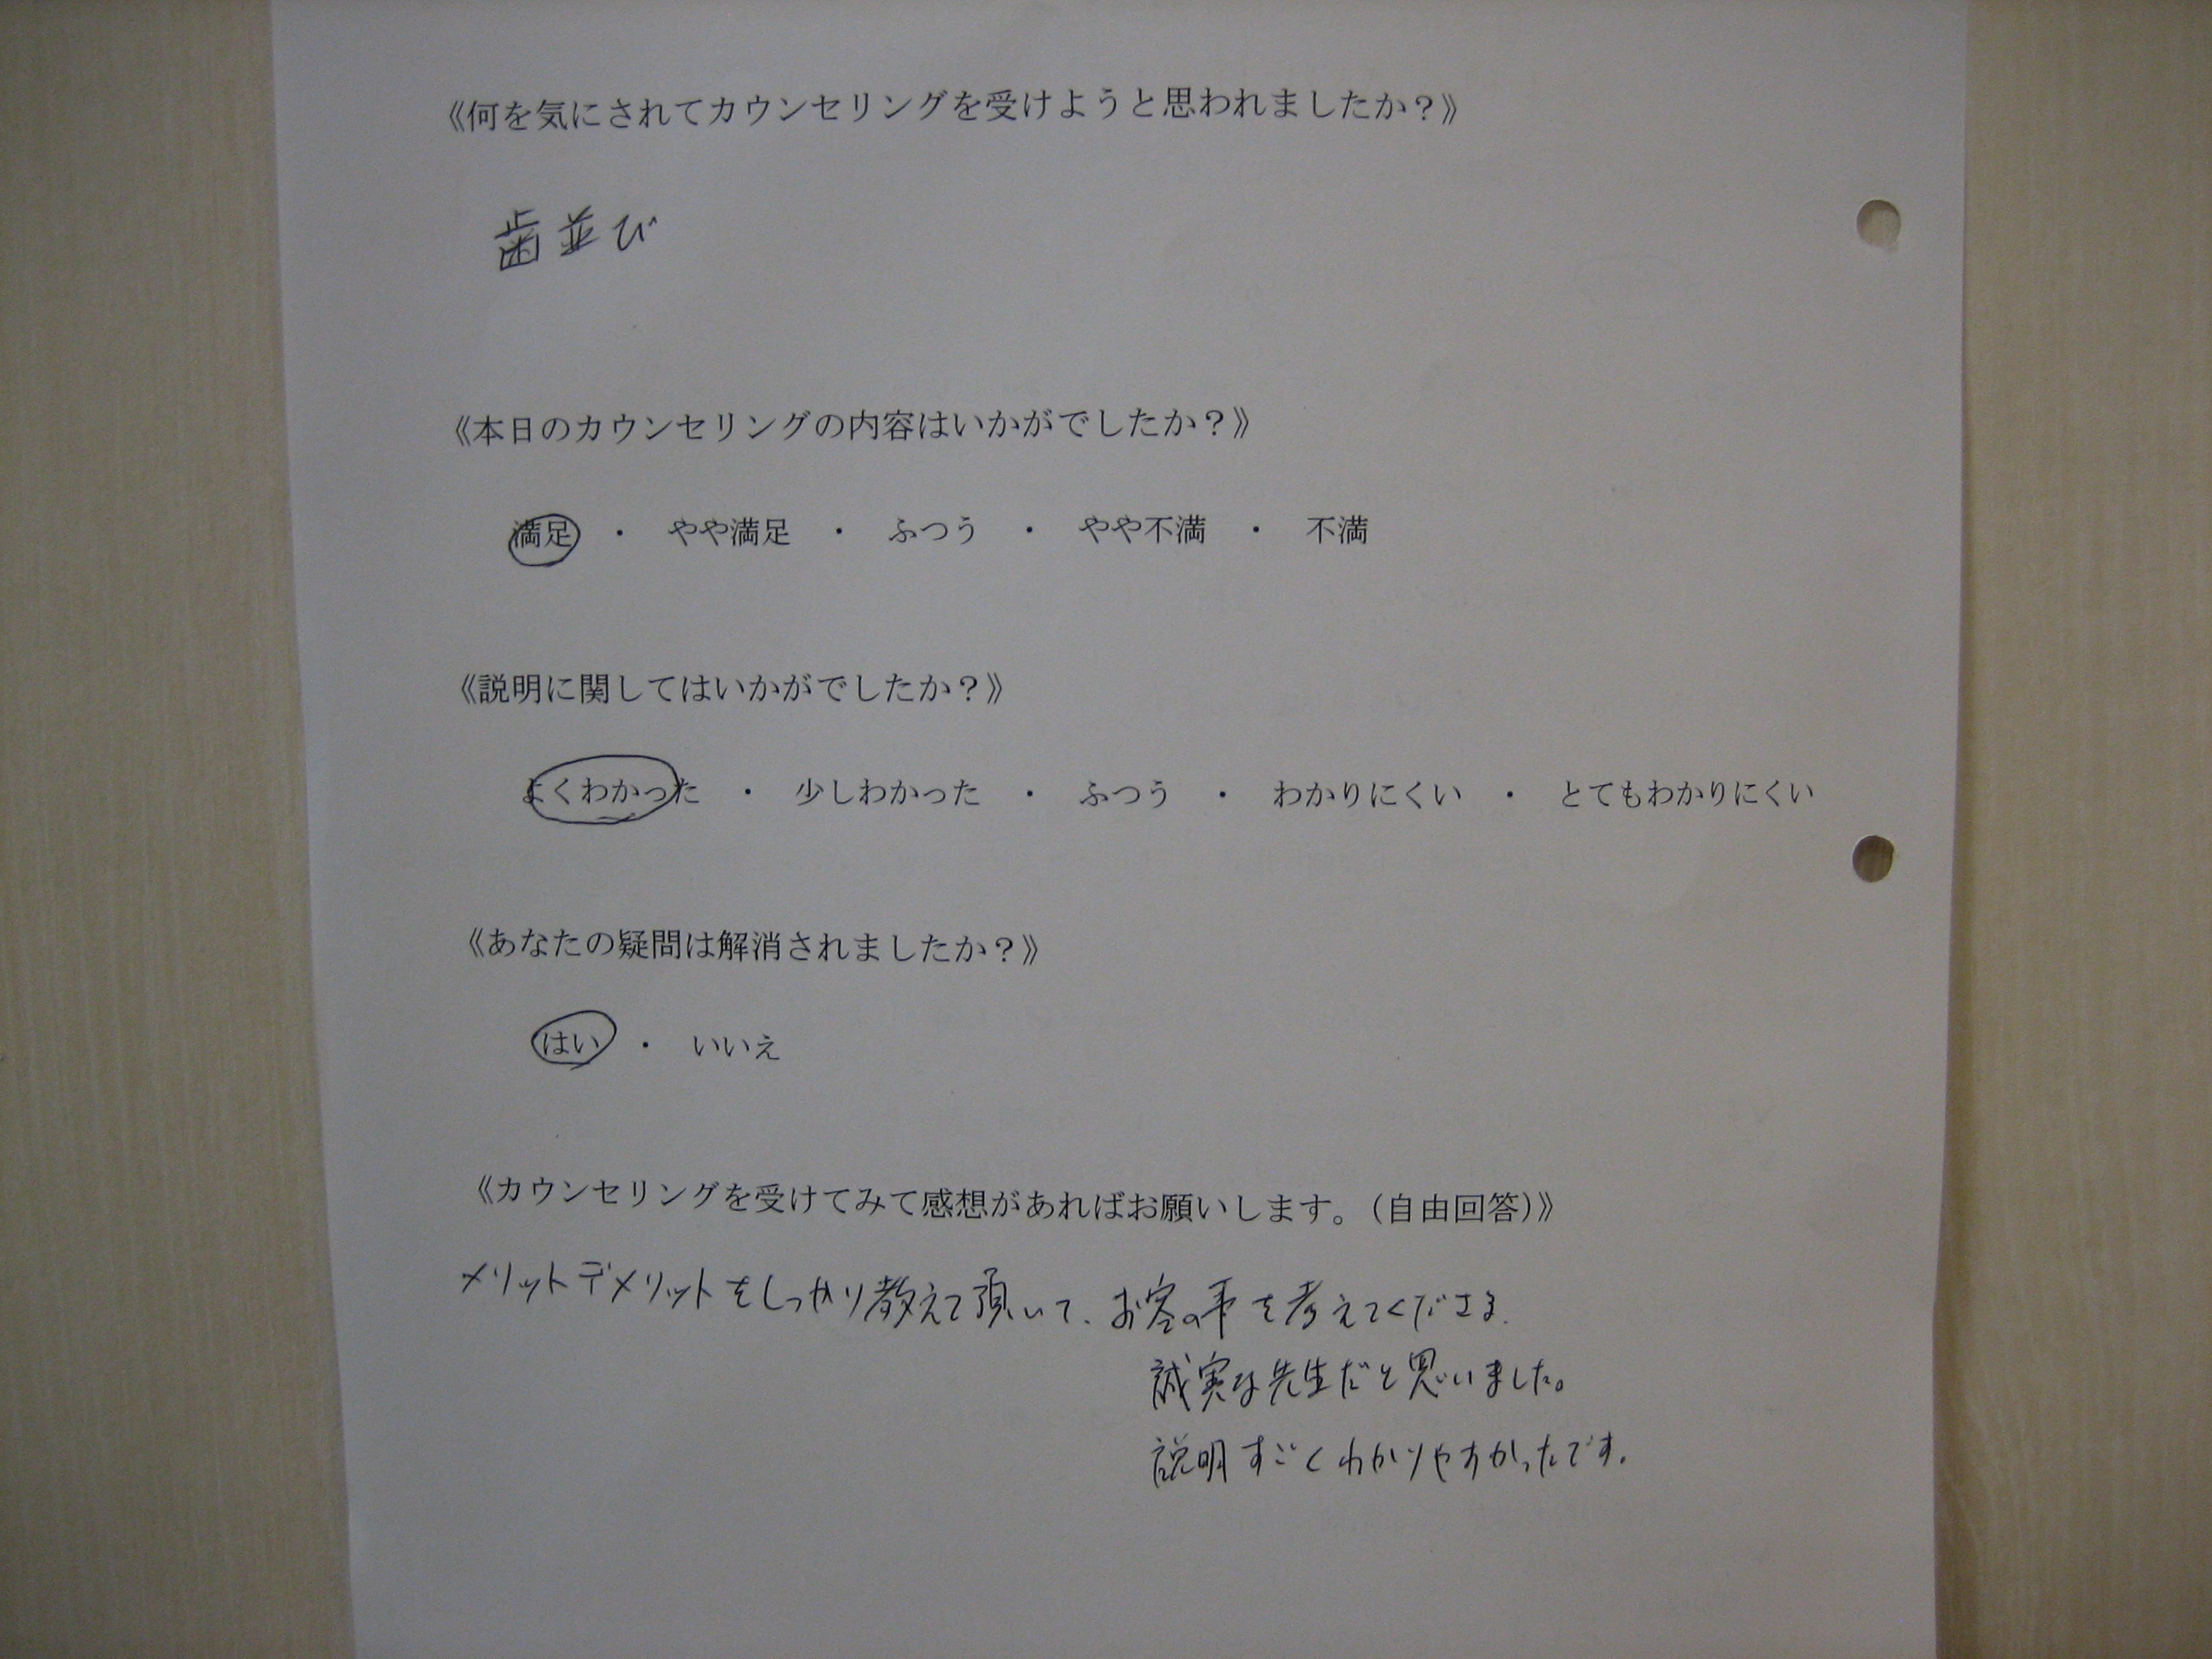 《何を気にされてカウンセリングを受けようと思われましたか？》
歯並び
《本日のカウンセリングの内容はいかがでしたか？》
満足 ・ やや満足 ・ ふつう ・ やや不満 ・ 不満
《説明に関してはいかがでしたか？》
よくわかった ・ 少しわかった ・ ふつう ・ わかりにくい ・ とてもわかりにくい
《あなたの疑問は解消されましたか？》
はい ・ いいえ
《カウンセリングを受けてみて感想があればお願いします。（自由回答）》
メリットデメリットをしっかり教えて頂いて、お客の事を考えてくださる、
誠実な先生だと思いました。
説明すごくわかりやすかったです。